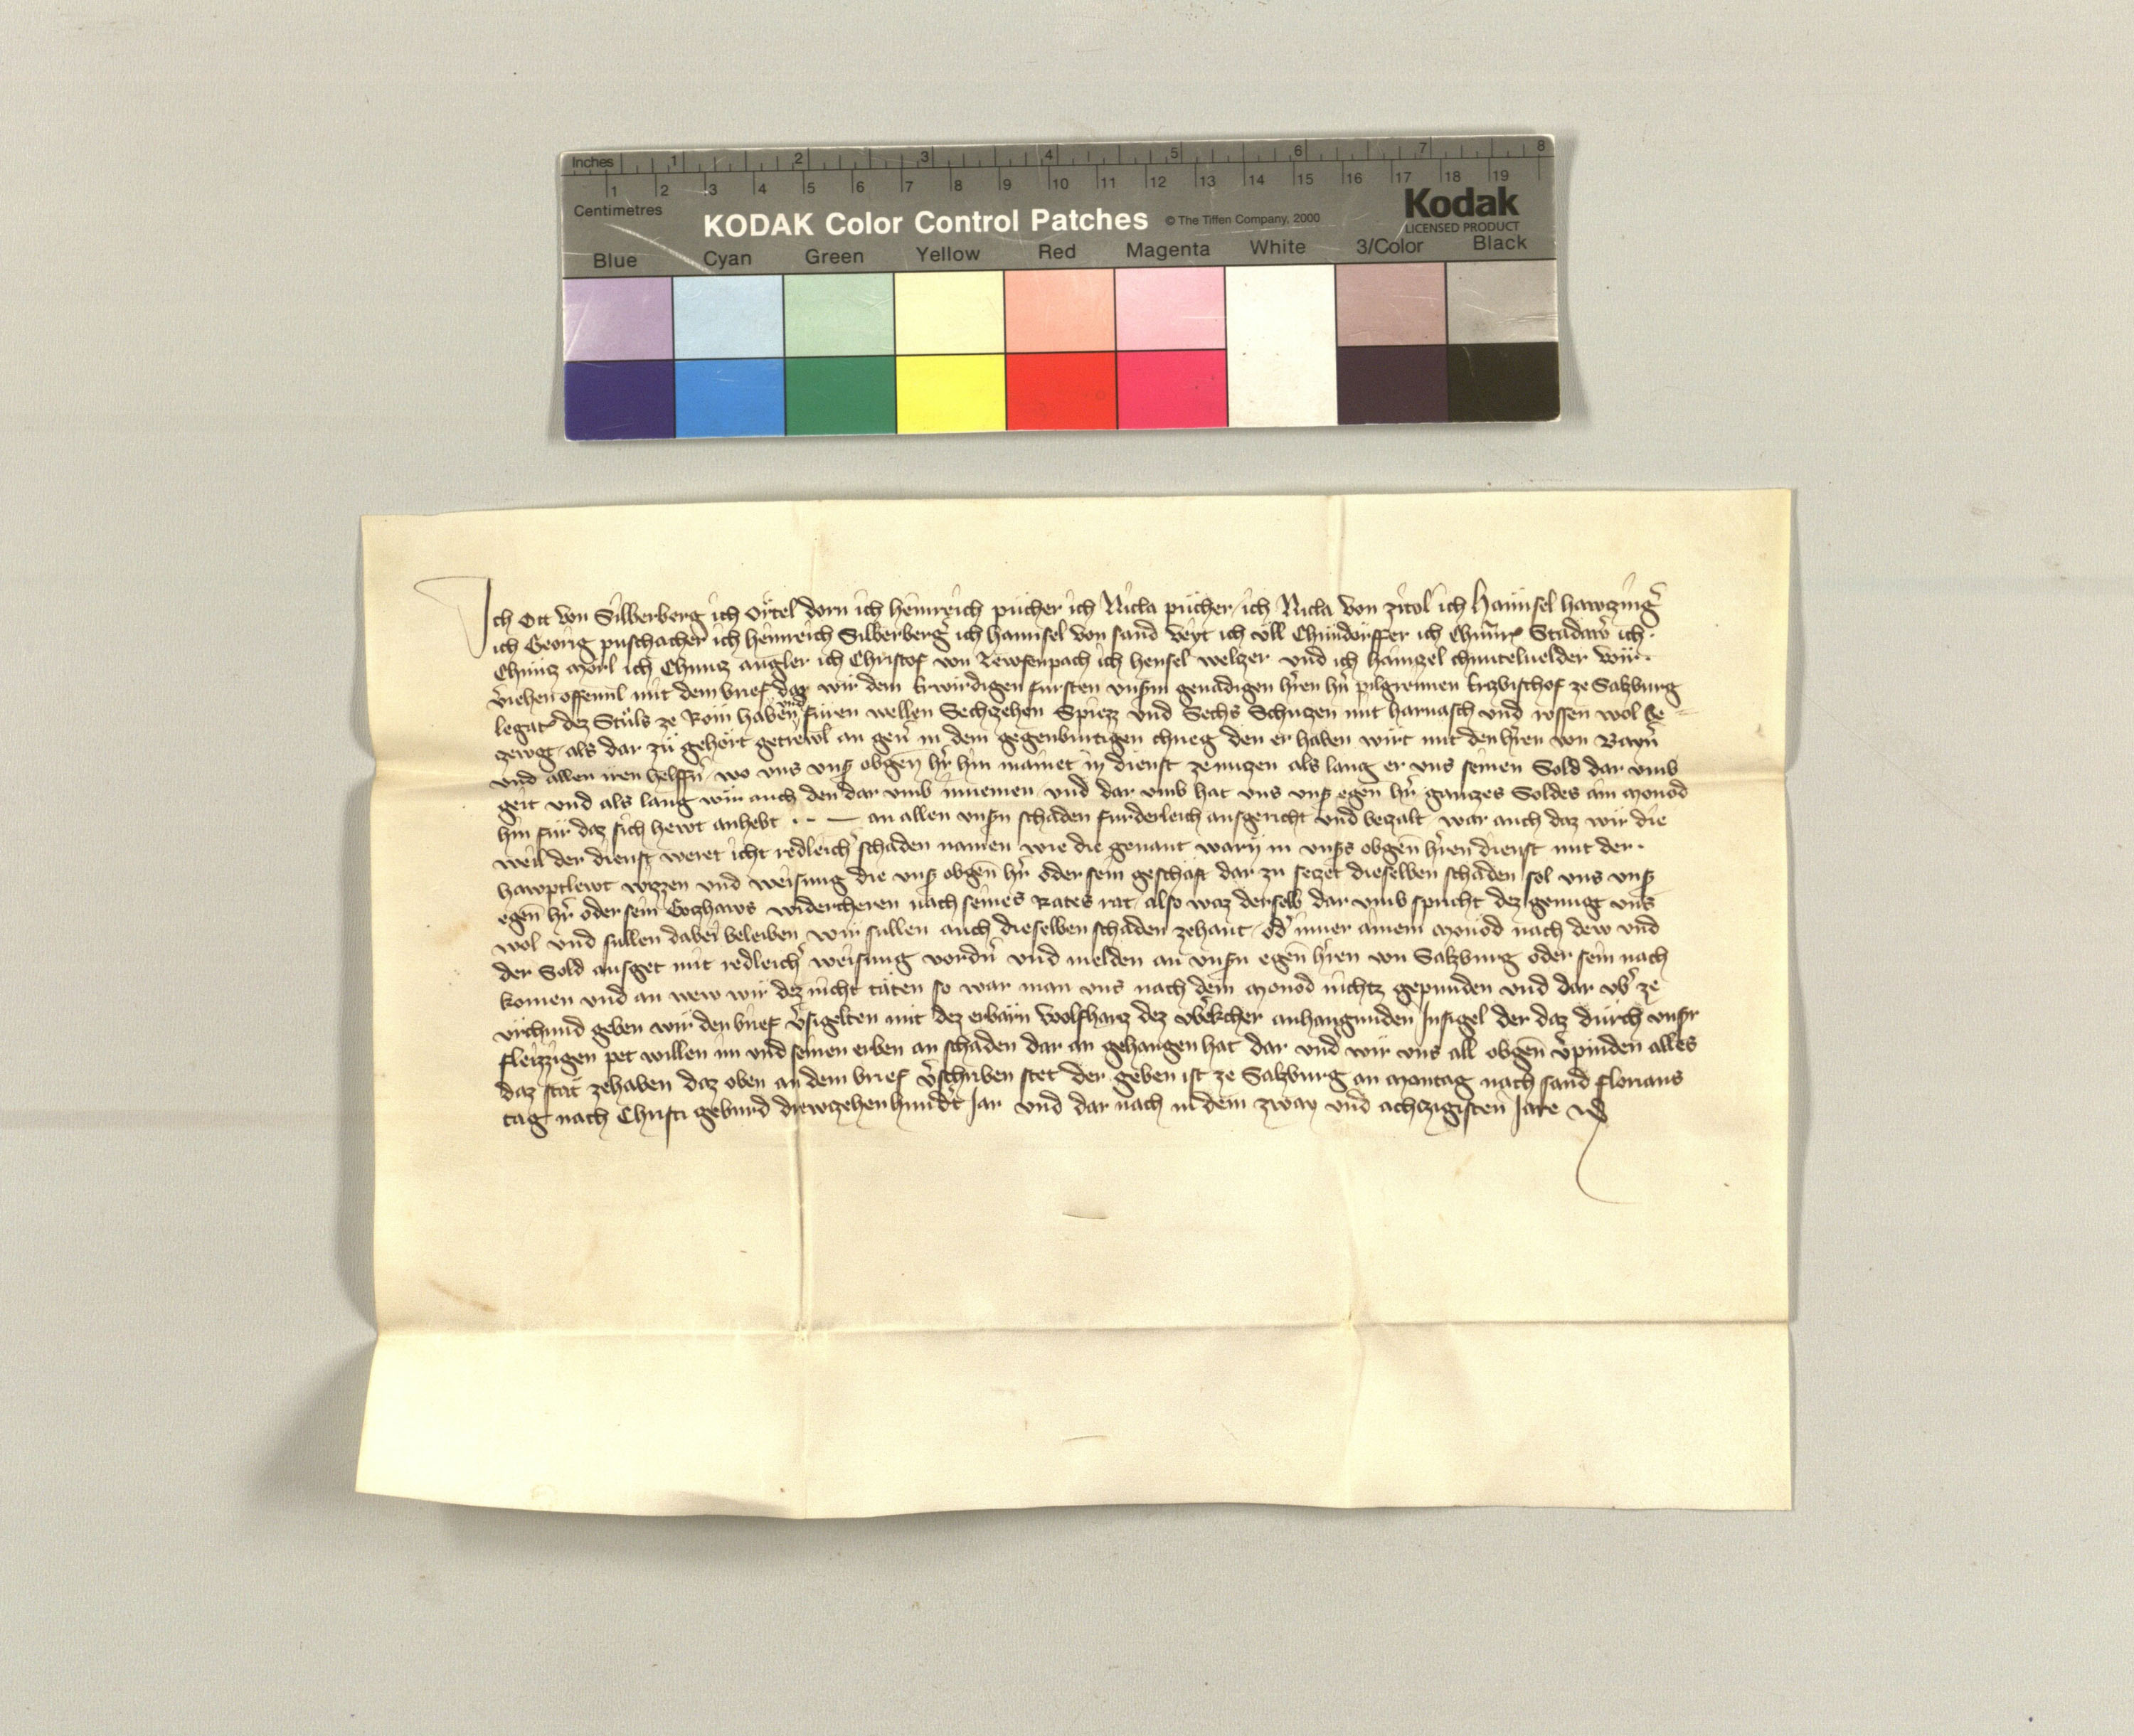 Inches 1 2 3 4 5 6 7 8
1 2 3 4 5 6 7 8 9 10 11 12 13 14 15 16 17 18 19
Centimetres
KODAK Color Control Patches © The Tiffen Company, 2000 Kodak
LICENSED PRODUCT
Blue Cyan Green Yellow Red Magenta White 3/Color Black
Ich Ott von Silberberg ich Örtel dorn ich heinreich pücher ich Nicla pücher ich Nicla von zirol ich Hainsel hawzing͛
ich Georig puschacher ich heinreich Silberberg͛ ich hannsel von sand veyt ich üll Chündorffer ich Stadaw͛ ich
Chüncz Mörl ich Chuncz angler ich Christof von Tewfenpach ich hensel welczer und ich hainczel chnuteluelder wir
v͛iehen offennl mit dem brief daz wir dem Erwirdigen fursten uns͛m genadigen h͛ren h͛n pilgreimen Erczbischof ze Salczburg
legat dez Stůls ze Rom haben und füren wellen Sechczehen Spiezz und Sechs Schuczen mit harnasch und rossen wol be
zewgt als dar zů gehört getrewl an geu͛ in dem gegenburtigen chrieg den er haben wirt mit den h͛ren von Bayrn͛
und allen iren helffn͛ wo uns uns͛ obgen̄ h͛r hin mainet in dienst ze nuczen als lang er uns seinen Sold dar umb
geit und als lang wir auch den dar umb innemen und dar umb hat uns uns͛ egen̄ h͛r ganczes Soldes ain Monod
hin für daz sich hewt anhebt an allen uns͛n schaden furderleich ausgericht und beczalt war auch daz wir die
weil der dienst weret icht redleich͛ schaden namen wie die genant warn in uns͛s obgen̄ h͛ren dienst mit der
hawptlewt wizzen und weisung die uns͛ obgen̄ h͛r oder sein geschäft dar zu seczet dieselben schaden sol uns uns͛
egen̄ h͛r oder sein Goczhaws widercheren nach seines Rates rat also waz derselb dar umb spricht dez genugt uns
wol und sullen dabei beleiben wir sullen auch dieselben schaden zehant od͛ inner ainem Monod nach dem und
der Sold ausget mit redleich͛ weisung vordn͛ und melden an uns͛n egen̄ h͛ren von Salczburg oder sein nach
komen und an wew wir dez nicht täten so war man uns nach dem Monod nichtz gepunden und dar ub͛ ze
urchund geben wir den brief v͛sigelten mit dez erbarn Wolfharcz dez anhangunden Insigel der daz durch uns͛r
fleizzigen pet willen im und seinen erben an schaden dar an gehangen hat dar und wir uns all obgen̄ v͛pinden alles
daz stät zehaben daz oben an dem brief v͛schriben stet der geben ist ze Salczburg an Montag nach sand Florians
tag nach Christi geburd drewczehenhundt Iar und dar nach in dem zway und achczigisten Iare